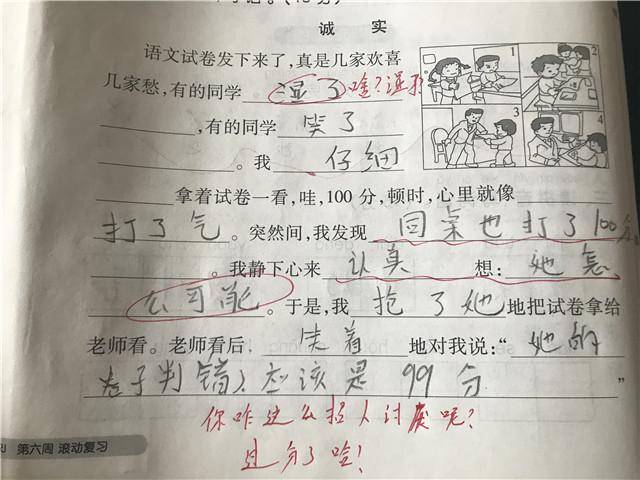 诚 实
语文试卷发下来了,真是几家欢喜
几家愁,有的同学 湿了 啥?湿了
,有的同学 哭了
。我 仔细
拿着试卷一看,哇,100 分,顿时,心里就像
打了气。突然间,我发现 同桌也打了100分
。我静下心来 认真 想: 她怎
么可能。于是,我 抢了她 地把试卷拿给
老师看。老师看后, 笑着 地对我说:“ 她的
卷子判错了应该是 99 分 ”
你咋这么招人讨厌呢?
过分了哈!
第六周 滚动复习
1
2
3
4